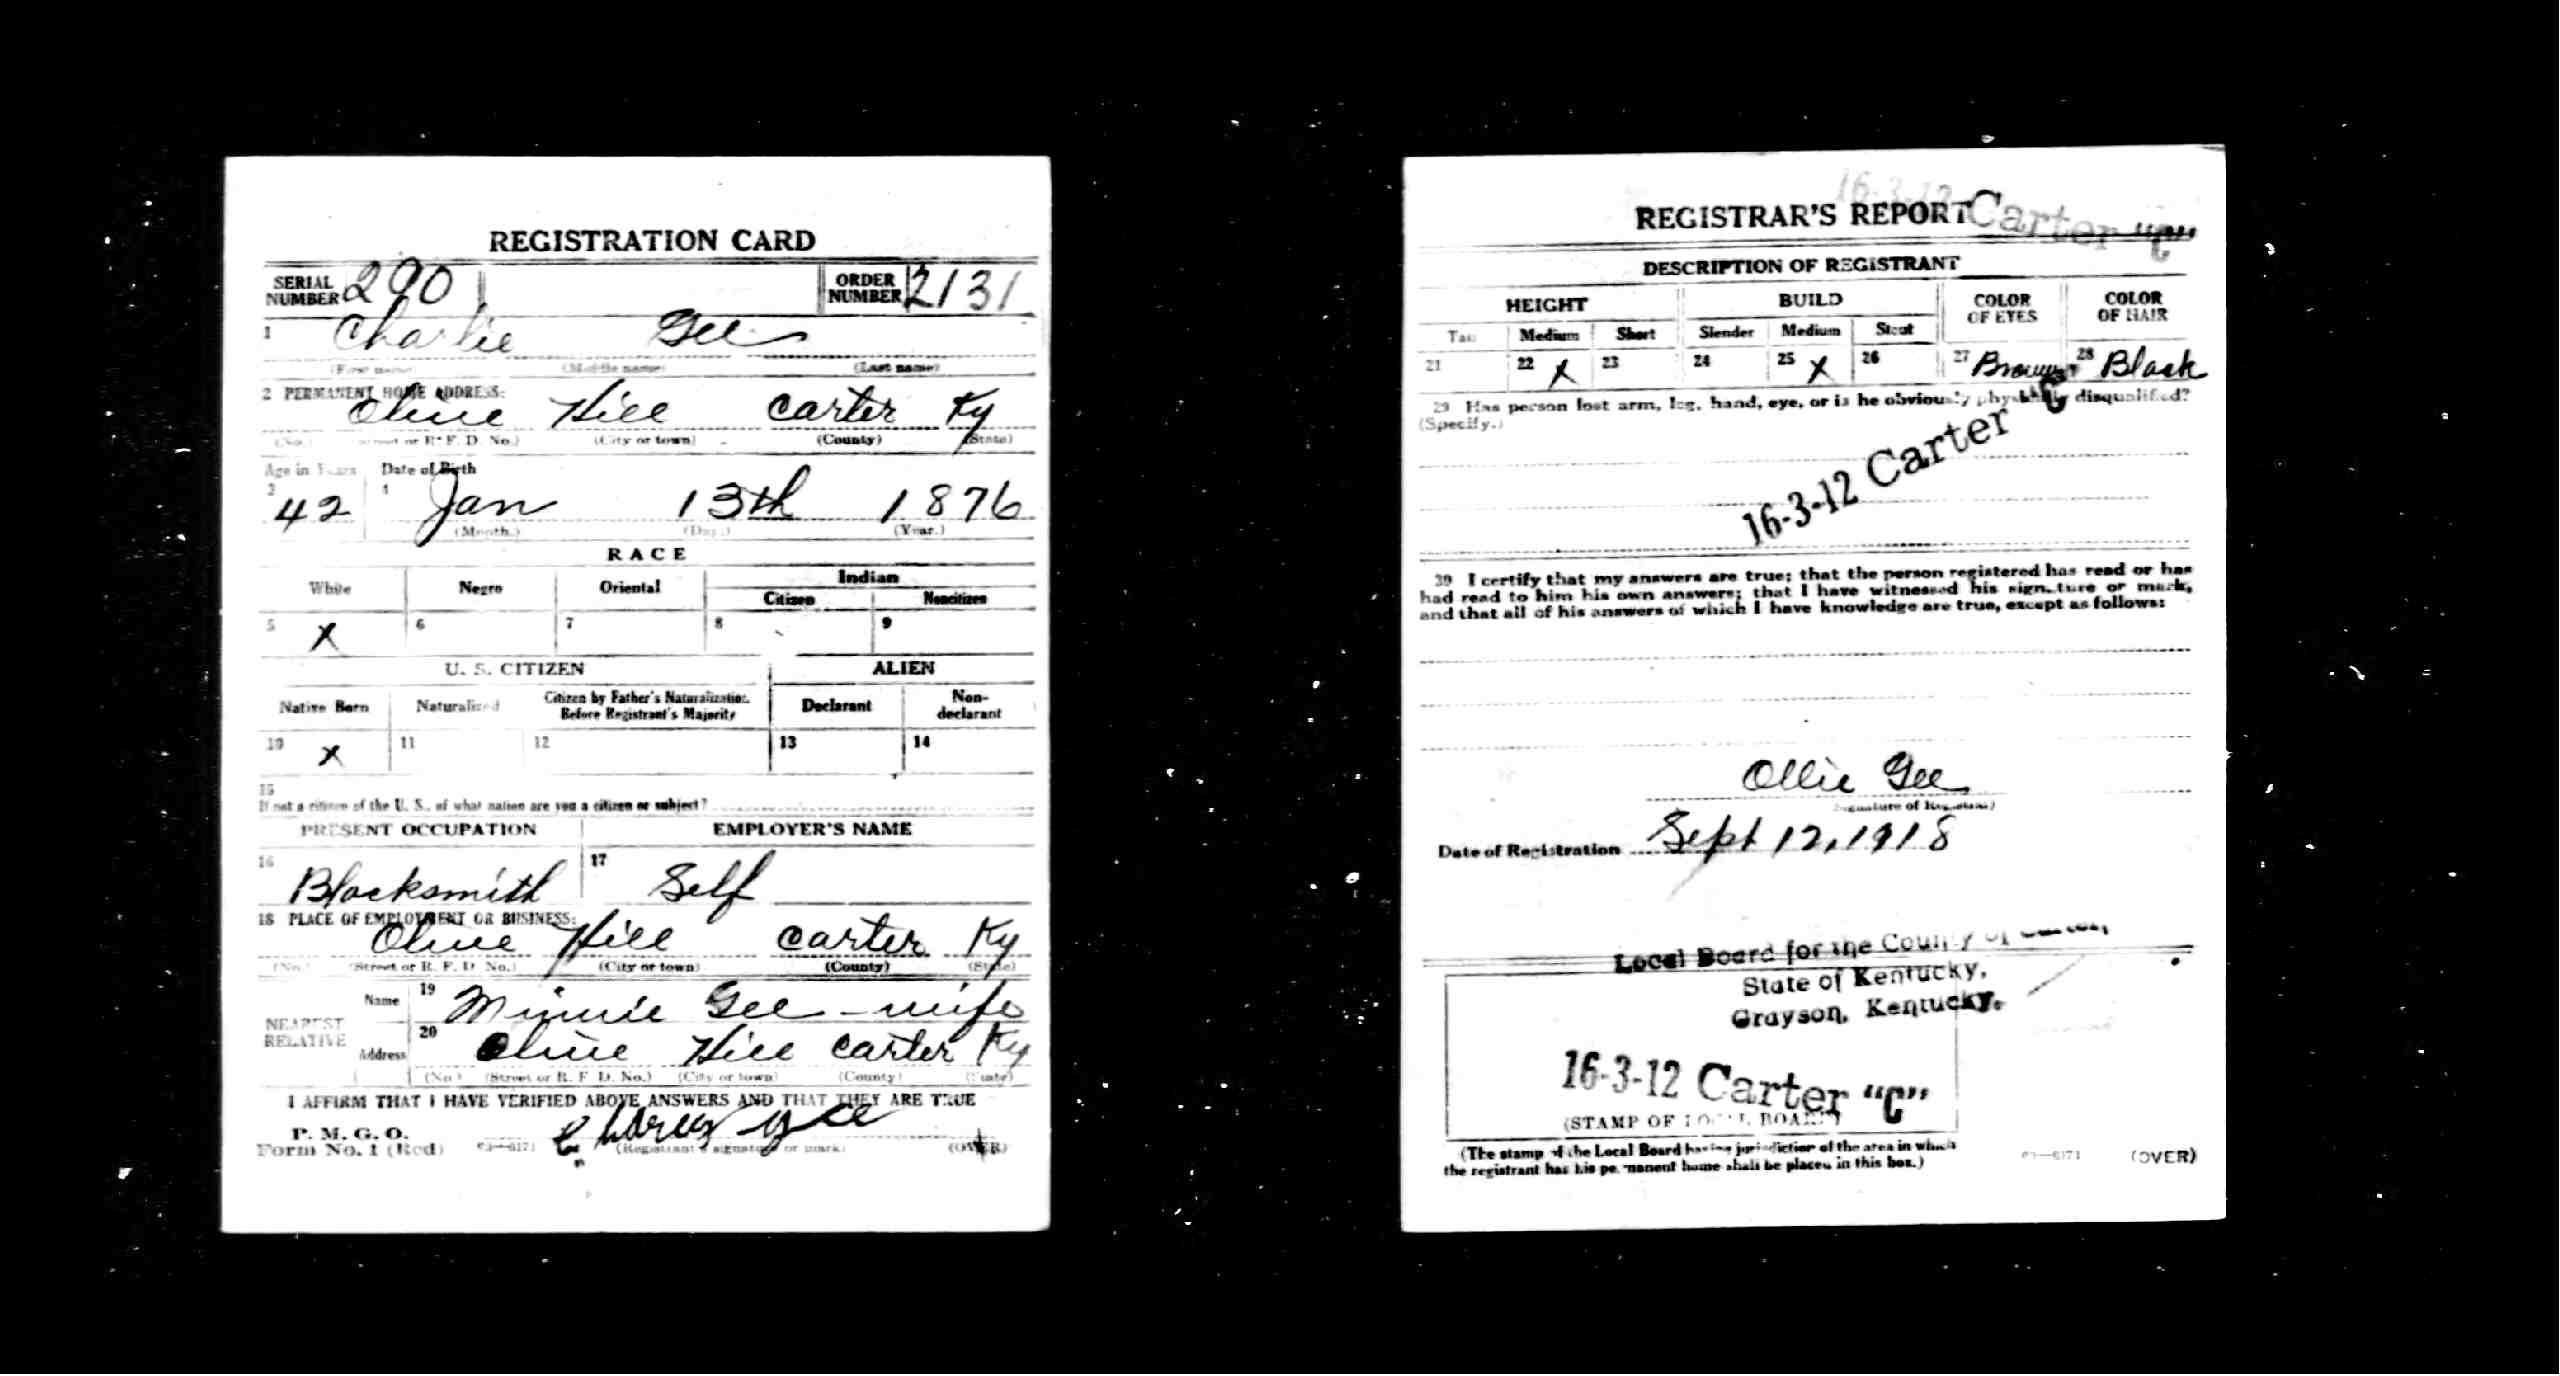 REGISTRATION CARD
SERIAL NUMBER 290 ORDER NUMBER 2131
1 Charlie Gee
(First name) (Middle name) (Last name)
2 PERMANENT HOME ADDRESS:
Olive Hill Carter Ky
(No.) (Street or R. F. D. No.) (City or town) (County) (State)
Age in Years Date of Birth
3 42 4 Jan 13th 1876
(Month.) (Day.) (Year.)
RACE
White Negro Oriental Indian
Citizen Noncitizen
5 X 6 7 8 9
U. S. CITIZEN ALIEN
Native Born Naturalized Citizen by Father's Naturalization Before Registrant's Majority Declarant Non-declarant
10 X 11 12 13 14
15
If not a citizen of the U. S., of what nation are you a citizen or subject?
PRESENT OCCUPATION EMPLOYER'S NAME
16 Blacksmith 17 Self
18 PLACE OF EMPLOYMENT OR BUSINESS:
Olive Hill Carter Ky
(No.) (Street or R. F. D. No.) (City or town) (County) (State)
NEAREST RELATIVE
Name 19 Minnie Gee - wife
Address 20 Olive Hill Carter Ky
(No.) (Street or R. F. D. No.) (City or town) (County) (State)
I AFFIRM THAT I HAVE VERIFIED ABOVE ANSWERS AND THAT THEY ARE TRUE
P. M. G. O.
Form No. 1 (Red) 03—6171 Charley Gee (OVER)
(Registrant's signature or mark)
16-3-12 Carter "C"
REGISTRAR'S REPORT
DESCRIPTION OF REGISTRANT
HEIGHT BUILD COLOR OF EYES COLOR OF HAIR
Tall Medium Short Slender Medium Stout
21 22 X 23 24 25 X 26 27 Brown 28 Black
29 Has person lost arm, leg, hand, eye, or is he obviously physically disqualified?
(Specify.)
16-3-12 Carter C
30 I certify that my answers are true; that the person registered has read or has
had read to him his own answers; that I have witnessed his signature or mark,
and that all of his answers of which I have knowledge are true, except as follows:
Ollie Gee
(Signature of Registrar)
Date of Registration Sept 12, 1918
Local Board for the County of Carter,
State of Kentucky,
Grayson, Kentucky.
16-3-12 Carter "C"
(STAMP OF LOCAL BOARD)
(The stamp of the Local Board having jurisdiction of the area in which
the registrant has his permanent home shall be placed in this box.)
03—6171 (OVER)